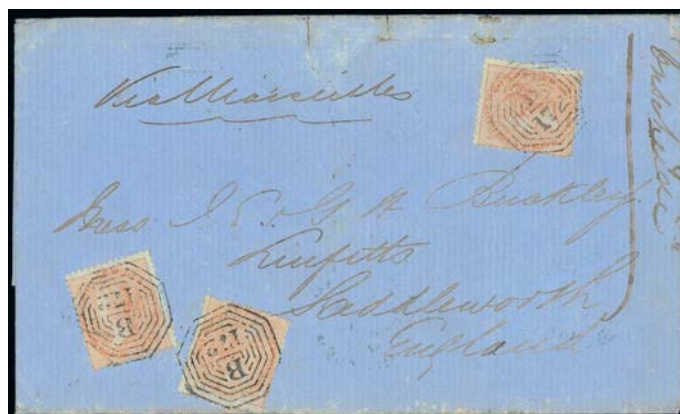 Via Marseilles
Mess J. S. & G. H. Buckley
Linfitts
Saddleworth
England
B
172
B
172